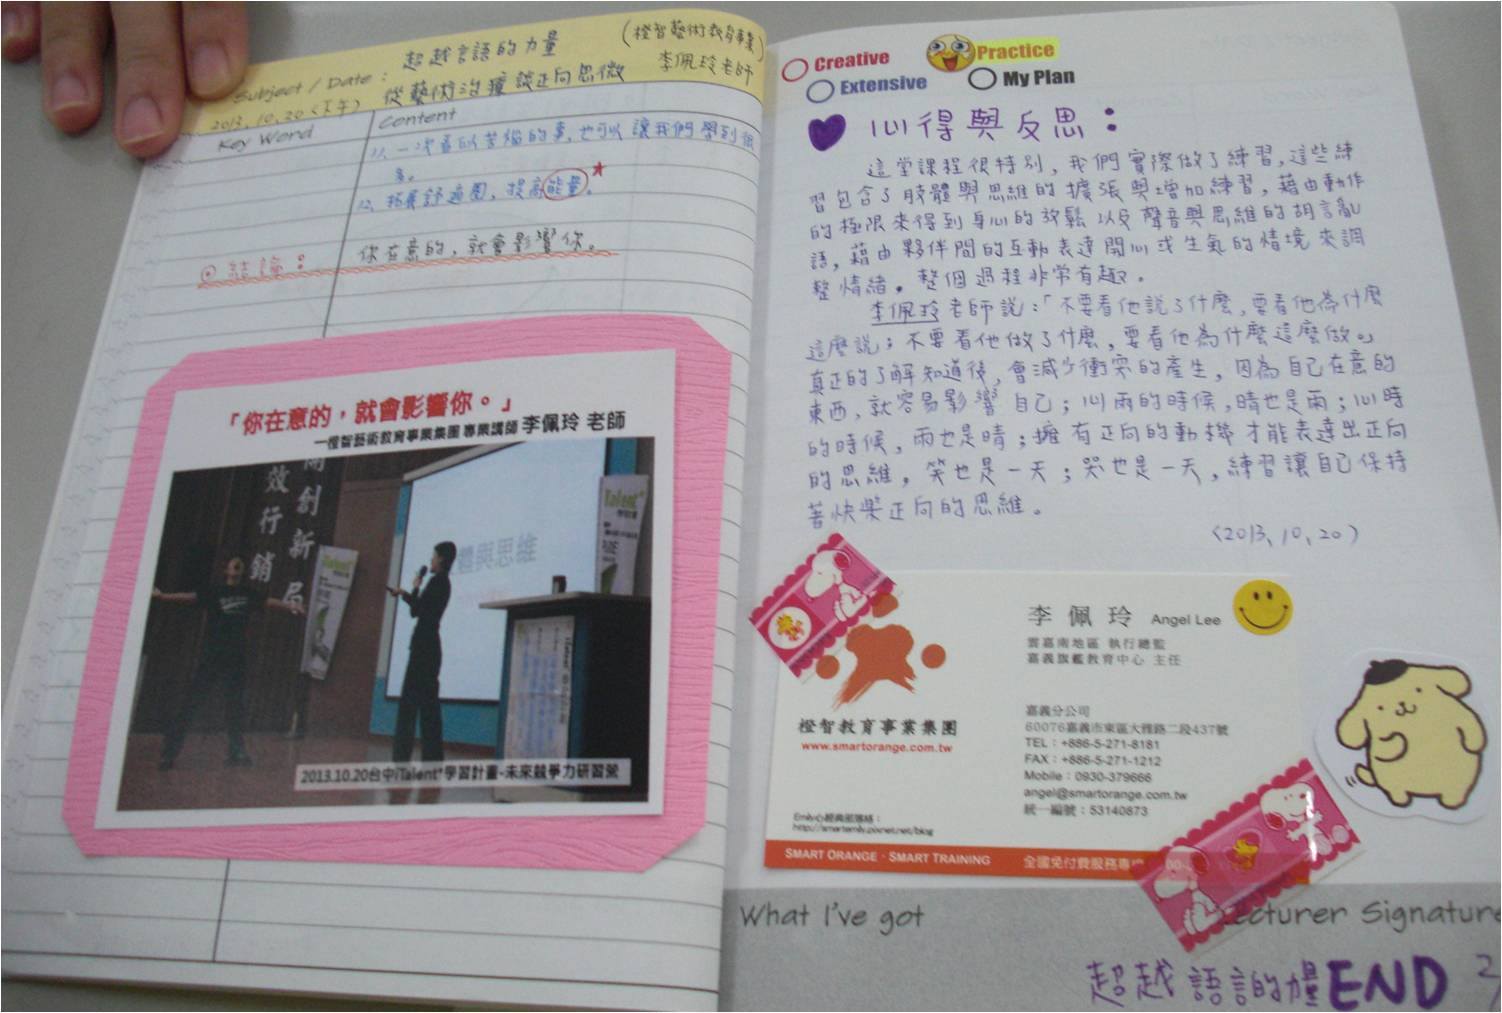 超越言語的力量
(橙智藝術教育事業)
Subject / Date :
從藝術治療談正向思微
李佩玲老師
2013.10.20(下午)
Key Word
Content
11、一次看似苦惱的事,也可以讓我們學到很
多。
12、拓展舒適圈,提高能量。★
◎結論:
你在意的,就會影響你。
「你在意的,就會影響你。」
—橙智藝術教育事業集團 專業講師 李佩玲 老師
創新局
效行銷
iTalent+
體與思維
iTalent+
2013.10.20台中iTalent+學習計畫-未來競爭力研習營
Creative
Practice
Extensive
My Plan
心得與反思:
這堂課程很特別,我們實際做了練習,這些練
習包含了肢體與思維的擴張與增加練習,藉由動作
的極限來得到身心的放鬆以及聲音與思維的胡言亂
語,藉由夥伴間的互動表達開心或生氣的情境來調
整情緒。整個過程非常有趣。
李佩玲老師說:「不要看他說了什麼,要看他為什麼
這麼說;不要看他做了什麼,要看他為什麼這麼做。」
真正的了解知道後,會減少衝突的產生,因為自己在意的
東西,就容易影響自己;心雨的時候,晴也是雨;心晴
的時候,雨也是晴;擁有正向的動機才能表達出正向
的思維,笑也是一天;哭也是一天,練習讓自己保持
著快樂正向的思維。
(2013、10、20)
李 佩 玲 Angel Lee
雲嘉南地區 執行總監
嘉義旗艦教育中心 主任
橙智教育事業集團
www.smartorange.com.tw
嘉義分公司
60076嘉義市東區大雅路二段437號
TEL:+886-5-271-8181
FAX:+886-5-271-1212
Mobile:0930-379666
angel@smartorange.com.tw
統一編號:53140873
Emily心經典部落格:
http://smartemily.pixnet.net/blog
SMART ORANGE · SMART TRAINING
全國免付費服務專
What I've got
Lecturer Signature
超越語言的力量END